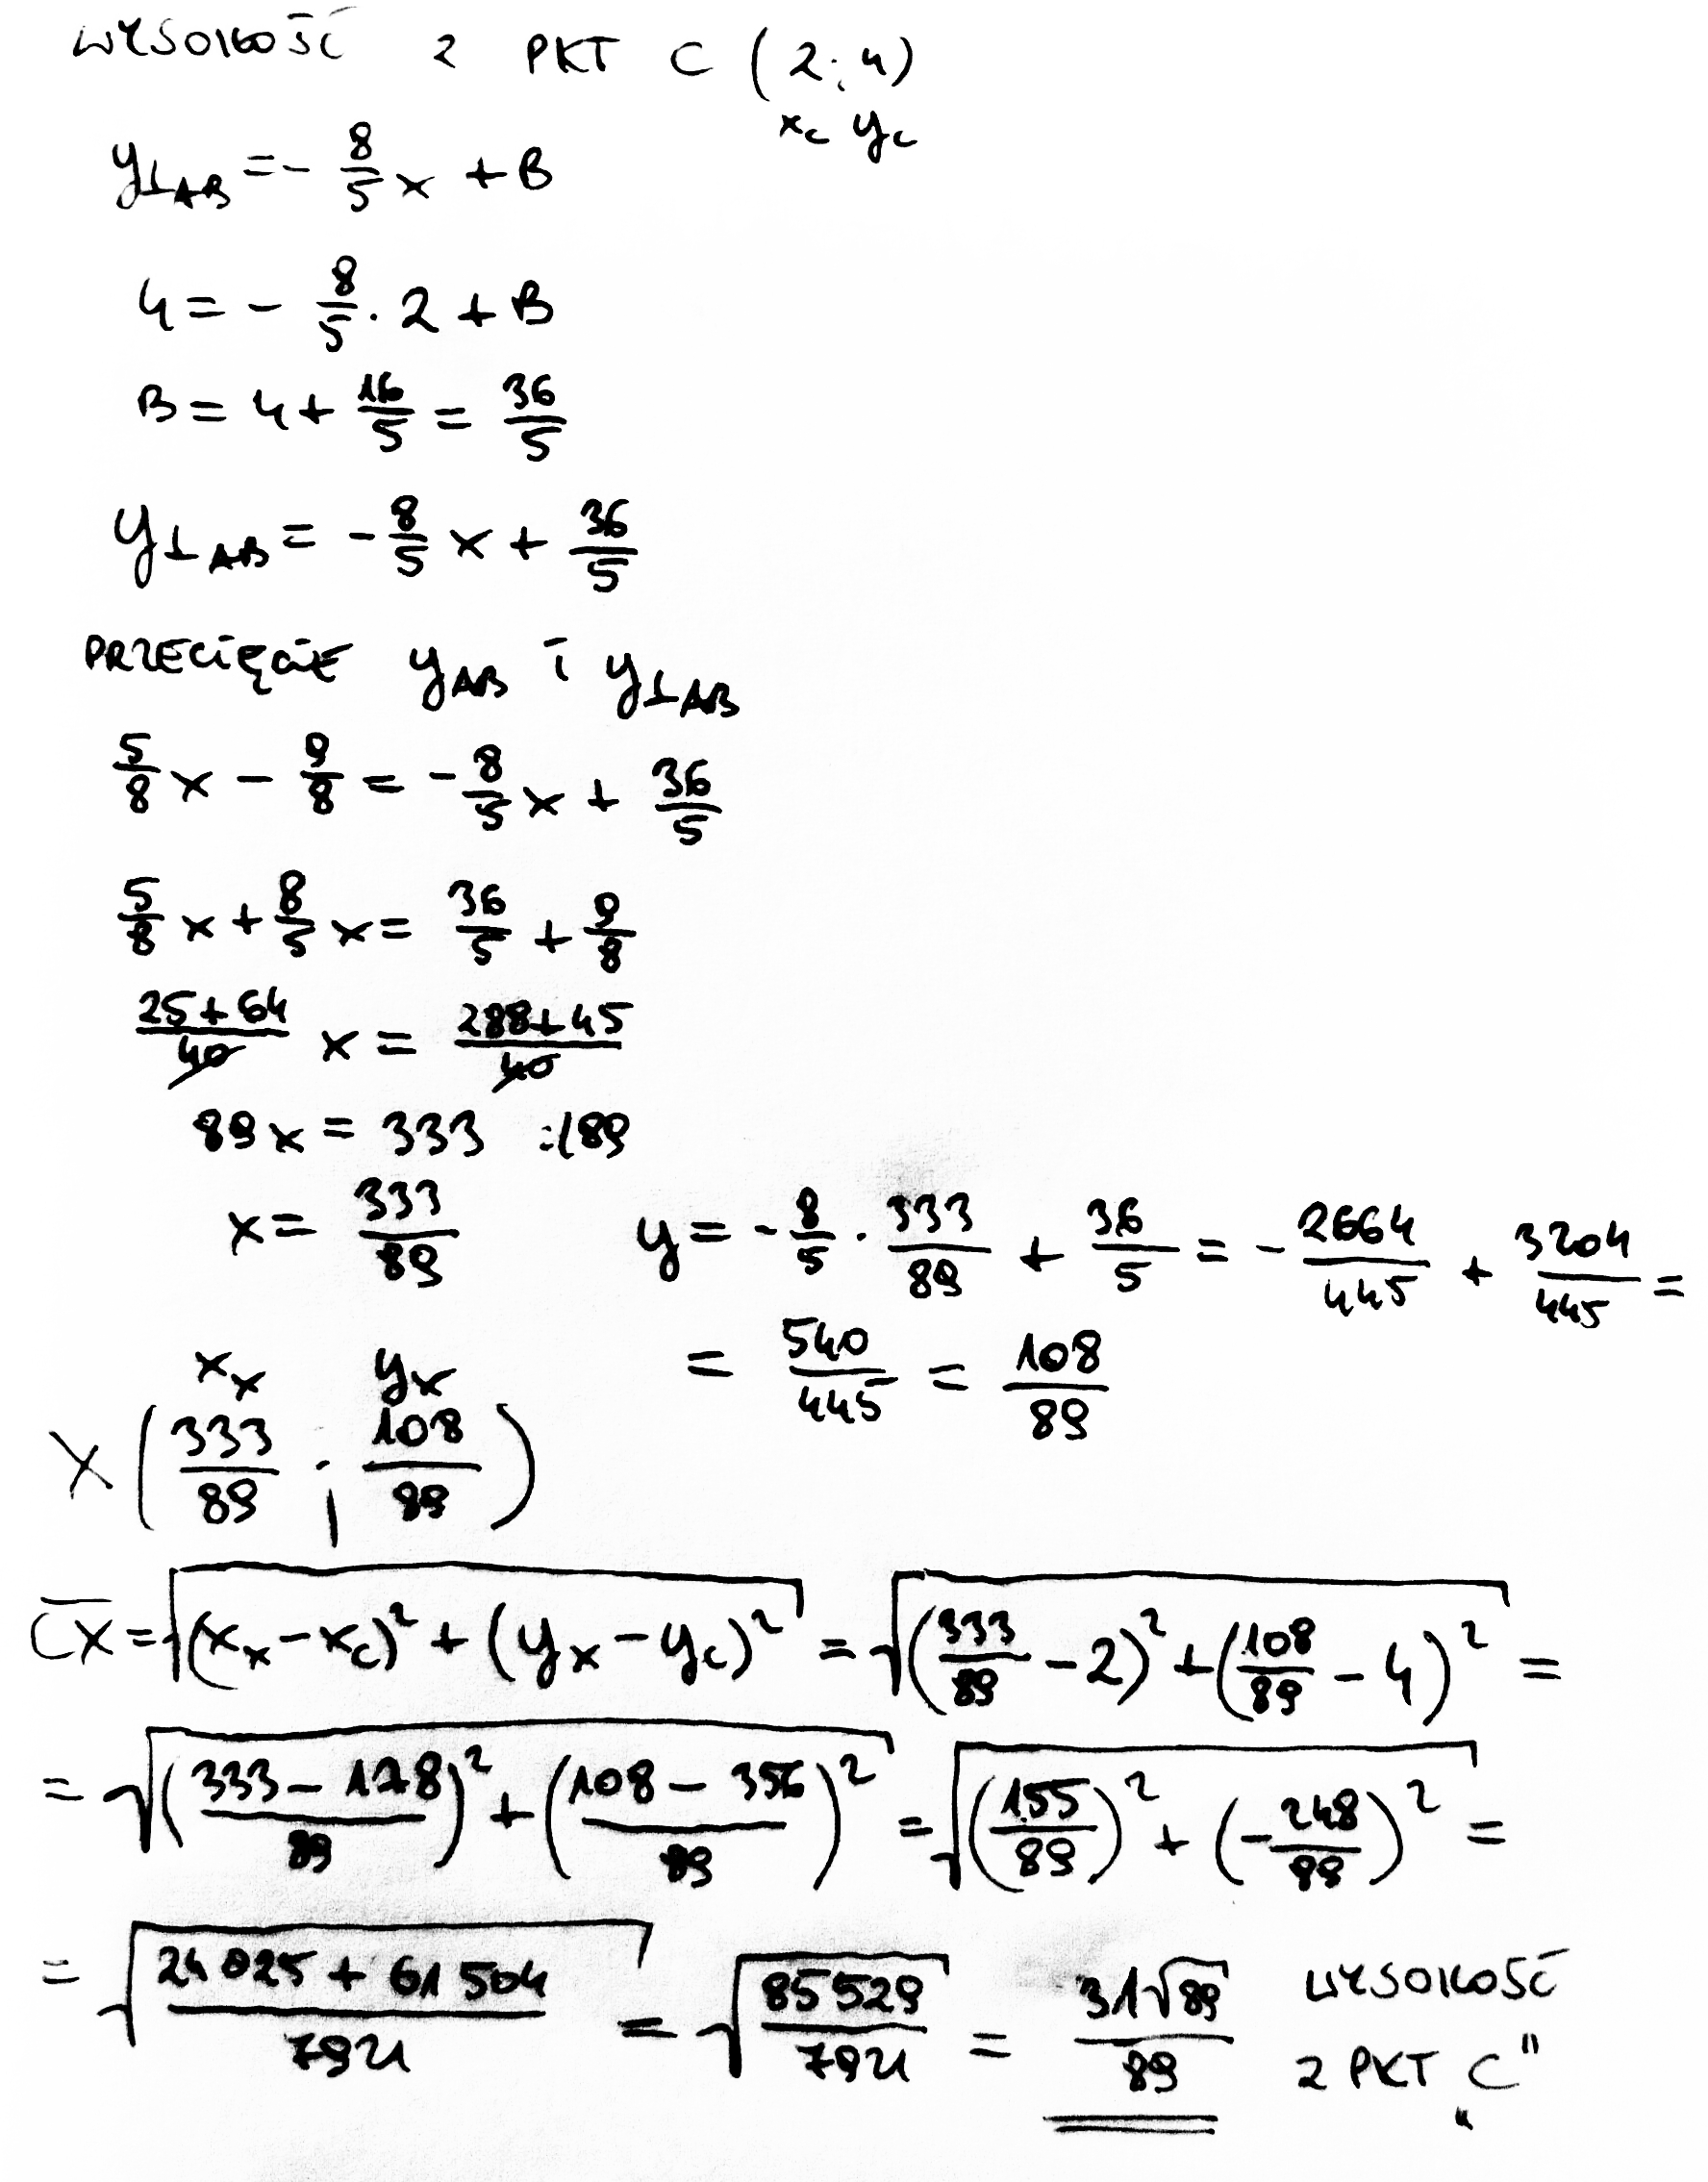 WYSOKOŚĆ Z PKT C (2; 4)
x_C y_C
y⊥AB = - 8/5 x + B
4 = - 8/5 · 2 + B
B = 4 + 16/5 = 36/5
y⊥AB = - 8/5 x + 36/5
PRZECIĘCIE y_AB i y⊥AB
5/8 x - 9/8 = - 8/5 x + 36/5
5/8 x + 8/5 x = 36/5 + 9/8
(25+64)/40 x = (288+45)/40
89x = 333 :/89
x = 333/89 y = - 8/5 · 333/89 + 36/5 = - 2664/445 + 3204/445 =
= 540/445 = 108/89
x_X y_X
X (333/89 ; 108/89)
CX = √((x_X - x_C)² + (y_X - y_C)²) = √((333/89 - 2)² + (108/89 - 4)²) =
= √(((333 - 178)/89)² + ((108 - 356)/89)²) = √((155/89)² + (- 248/89)²) =
= √((24025 + 61504)/7921) = √(85529/7921) = 31√89/89 WYSOKOŚĆ
Z PKT „C"